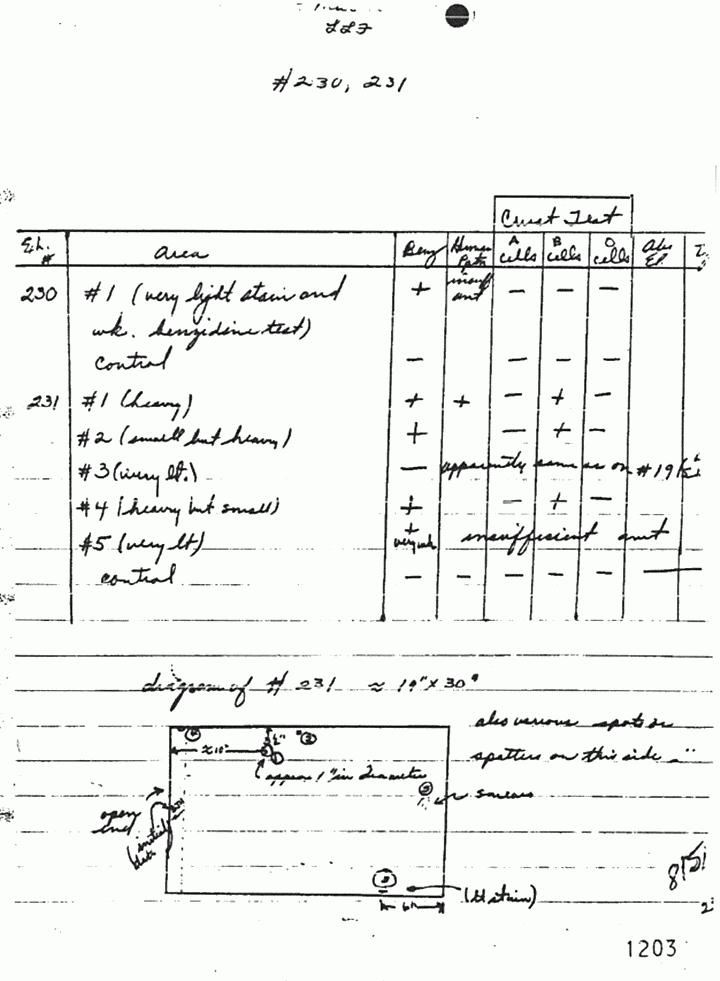 #230, 231
Crust Test
Ex. # Area Benz Human A cells B cells O cells Abs El
230 #1 (very light stain and + insuff amt — — —
wk. benzidine test)
control — — — —
231 #1 (heavy) + + — + —
#2 (small but heavy) + — + —
#3 (very lt.) — apparently same as on #19
#4 (heavy but small) + — + —
#5 (very lt) + very wk insufficient amt
control — — — — —
diagram of # 231 ≈ 19" x 30"
also various spots or
spatters on this side
≈10"
approx 1" in diameter
smears
open end
(initial date)
(lt stain)
6"
1203